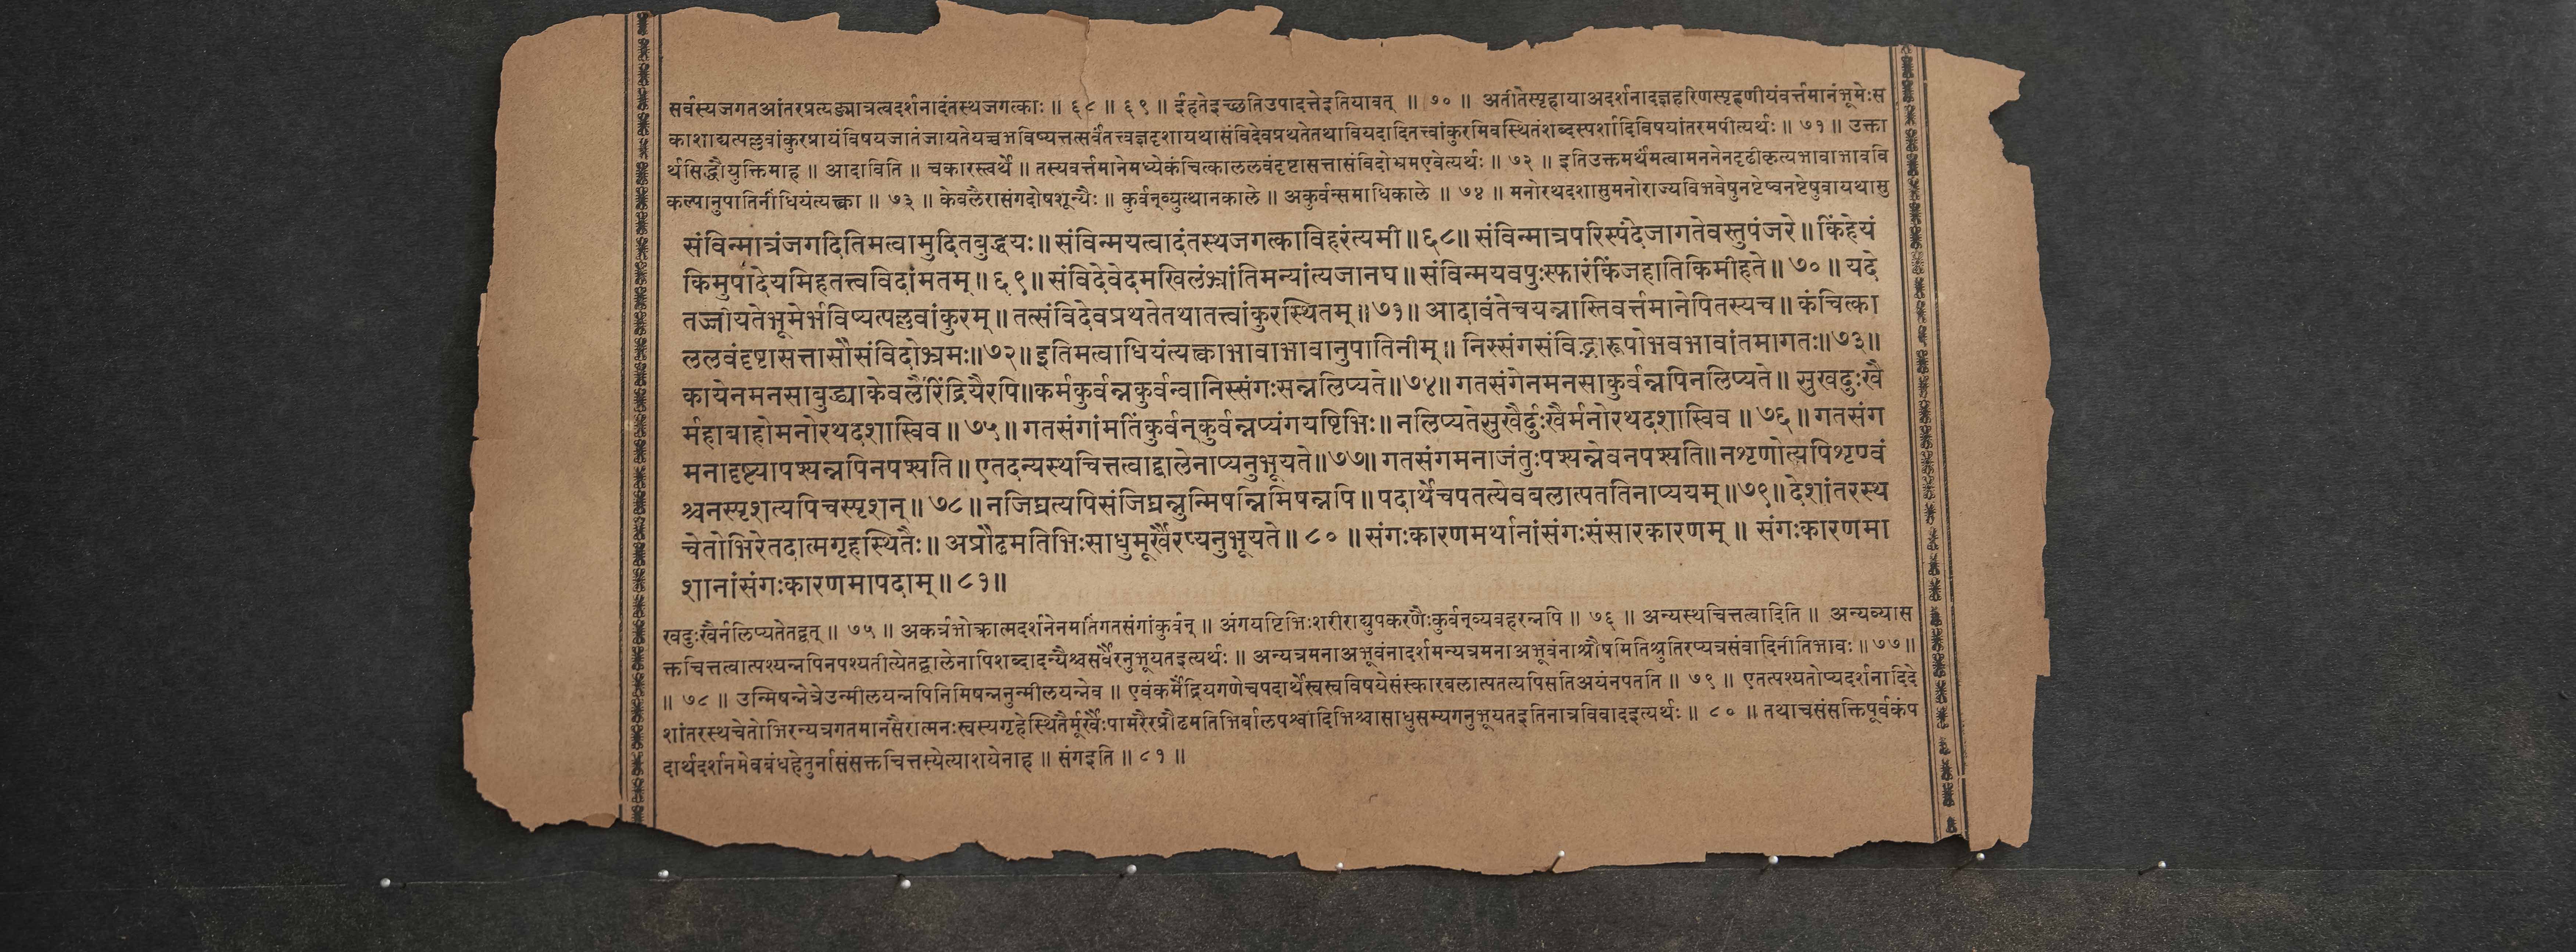 सर्वस्यजगतआंतरप्रत्यङ्मात्रत्वदर्शनादंतस्थजगत्काः ॥ ६८ ॥ ६९ ॥ ईहतेइच्छतिउपादत्तेइतियावत् ॥ ७० ॥ अतीतेस्पृहायाअदर्शनादज्ञहरिणस्पृहणीयंवर्त्तमानंभूमेःस
काशाद्यत्पल्लवांकुरप्रायंविषयजातंजायतेयच्चभविष्यत्तत्सर्वंतत्त्वज्ञदृशायथासंविदेवप्रथतेतथावियदादितत्त्वांकुरमिवस्थितंशब्दस्पर्शादिविषयांतरमपीत्यर्थः ॥ ७१ ॥ उक्ता
र्थसिद्धौयुक्तिमाह ॥ आदाविति ॥ चकारस्त्वर्थे ॥ तस्यवर्त्तमानेमध्येकंचित्काललवंदृष्टासत्तासंविदोभ्रमएवेत्यर्थः ॥ ७२ ॥ इतिउक्तमर्थंमत्वामननेनदृढीकृत्यभावाभाववि
कल्पानुपातिनींधियंत्यक्त्वा ॥ ७३ ॥ केवलैरासंगदोषशून्यैः ॥ कुर्वन्व्युत्थानकाले ॥ अकुर्वन्समाधिकाले ॥ ७४ ॥ मनोरथदशासुमनोराज्यविभवेषुनष्टेष्वनष्टेषुवायथासु
संविन्मात्रंजगदितिमत्वामुदितबुद्धयः॥ संविन्मयत्वादंतस्थजगत्काविहरंत्यमी॥६८॥ संविन्मात्रपरिस्पंदेजागतेवस्तुपंजरे॥ किंहेयं
किमुपादेयमिहतत्त्वविदांमतम्॥ ६९॥ संविदेवेदमखिलंभ्रांतिमन्यांत्यजानघ॥ संविन्मयवपुःस्फारंकिंजहातिकिमीहते॥ ७०॥ यदे
तज्जायतेभूमेर्भविष्यत्पल्लवांकुरम्॥ तत्संविदेवप्रथतेतथातत्त्वांकुरस्थितम्॥७१॥ आदावंतेचयन्नास्तिवर्त्तमानेपितस्यच॥ कंचित्का
ललवंदृष्टासत्तासौसंविदोभ्रमः॥७२॥ इतिमत्वाधियंत्यक्त्वाभावाभावानुपातिनीम्॥ निस्संगसंविद्भारूपोभवभावांतमागतः॥७३॥
कायेनमनसाबुद्ध्याकेवलैरिंद्रियैरपि॥कर्मकुर्वन्नकुर्वन्वानिस्संगःसन्नलिप्यते॥७४॥ गतसंगेनमनसाकुर्वन्नपिनलिप्यते॥ सुखदुःखै
र्महाबाहोमनोरथदशास्विव॥ ७५॥ गतसंगांमतिंकुर्वन्कुर्वन्नप्यंगयष्टिभिः॥ नलिप्यतेसुखैर्दुःखैर्मनोरथदशास्विव॥ ७६॥ गतसंग
मनादृष्ट्यापश्यन्नपिनपश्यति॥ एतदन्यस्थचित्तत्वाद्बालेनाप्यनुभूयते॥७७॥ गतसंगमनाजंतुःपश्यन्नेवनपश्यति॥ नशृणोत्यपिशृण्वं
श्चनस्पृशत्यपिचस्पृशन्॥ ७८॥ नजिघ्रत्यपिसंजिघ्रन्नुन्मिषन्निमिषन्नपि॥ पदार्थेचपतत्येवबलात्पततिनाप्ययम्॥७९॥ देशांतरस्थ
चेतोभिरेतदात्मगृहस्थितैः॥ अप्रौढमतिभिःसाधुमूर्खैरप्यनुभूयते॥ ८०॥ संगःकारणमर्थानांसंगःसंसारकारणम्॥ संगःकारणमा
शानांसंगःकारणमापदाम्॥ ८१॥
खदुःखैर्नलिप्यतेतद्वत् ॥ ७५ ॥ अकर्त्रभोक्त्रात्मदर्शनेनमतिंगतसंगांकुर्वन् ॥ अंगयष्टिभिःशरीराद्युपकरणैःकुर्वन्व्यवहरन्नपि ॥ ७६ ॥ अन्यस्थचित्तत्वादिति ॥ अन्यव्यास
क्तचित्तत्वात्पश्यन्नपिनपश्यतीत्येतद्बालेनापिशब्दादन्यैश्चसर्वैरनुभूयतइत्यर्थः ॥ अन्यत्रमनाअभूवंनादर्शमन्यत्रमनाअभूवंनाश्रौषमितिश्रुतिरप्यत्रसंवादिनीतिभावः ॥ ७७॥
॥ ७८ ॥ उन्मिषन्नेत्रेउन्मीलयन्नपिनिमिषन्ननुन्मीलयन्नेव ॥ एवंकर्मेंद्रियगणेचपदार्थेस्वस्वविषयेसंस्कारबलात्पतत्यपिसतिअयंनपतति ॥ ७९ ॥ एतत्पश्यतोप्यदर्शनादिदे
शांतरस्थचेतोभिरन्यत्रगतमानसैरात्मनःस्वस्यगृहेस्थितैर्मूर्खैःपामरैरप्रौढमतिभिर्बालपश्वादिभिश्चासाधुसम्यगनुभूयतइतिनात्रविवादइत्यर्थः ॥ ८० ॥ तथाचसंसक्तिपूर्वकंप
दार्थदर्शनमेवबंधहेतुर्नासंसक्तचित्तस्येत्याशयेनाह ॥ संगइति ॥ ८१ ॥